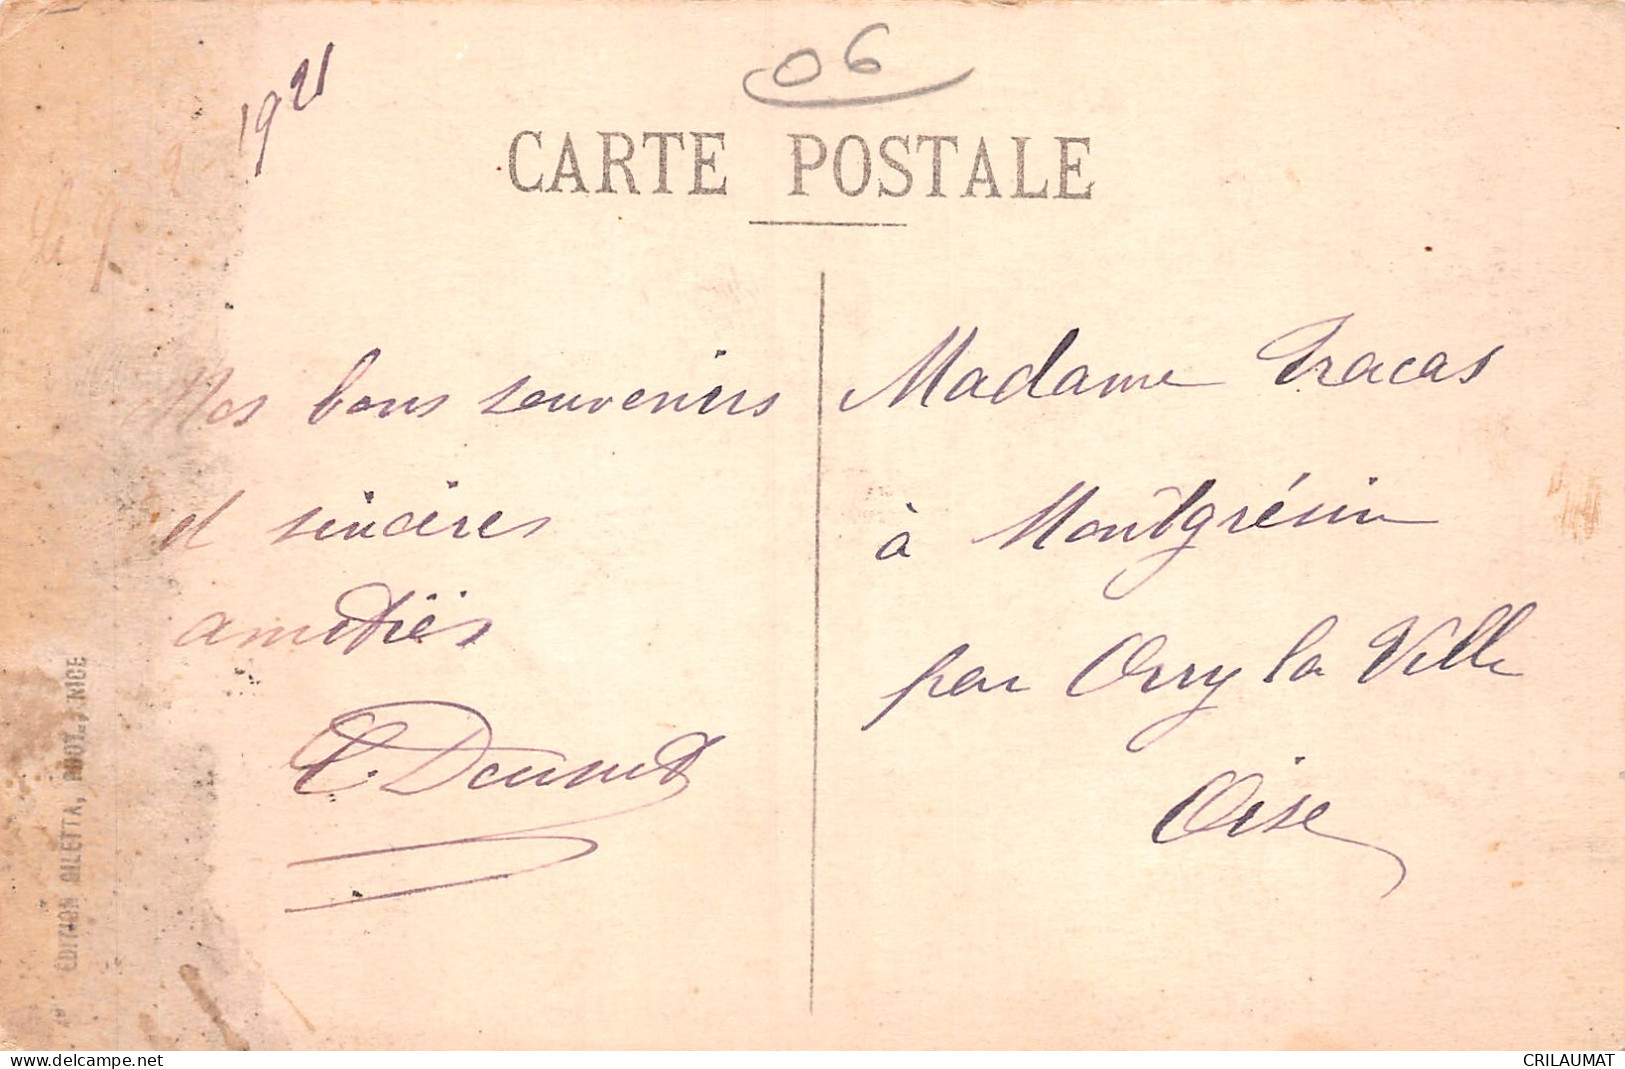 06
1921
CARTE POSTALE
Mes bons souvenirs
et sincères
amitiés
Madame Fracas
à Montgrésin
par Orry la Ville
Oise
EDITION GILETTA, PHOT., NICE
delcampe.net
CRILAUMAT